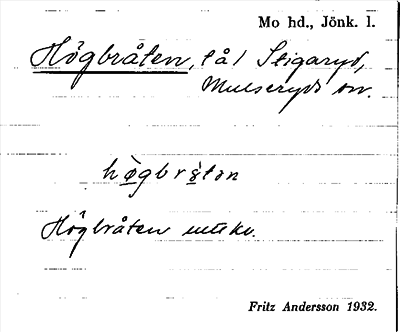 Mo hd., Jönk. l.
Högbråten, tå/ Stigaryd,
Mulseryds sn.
Högbråten utt kv.
Fritz Andersson 1932.